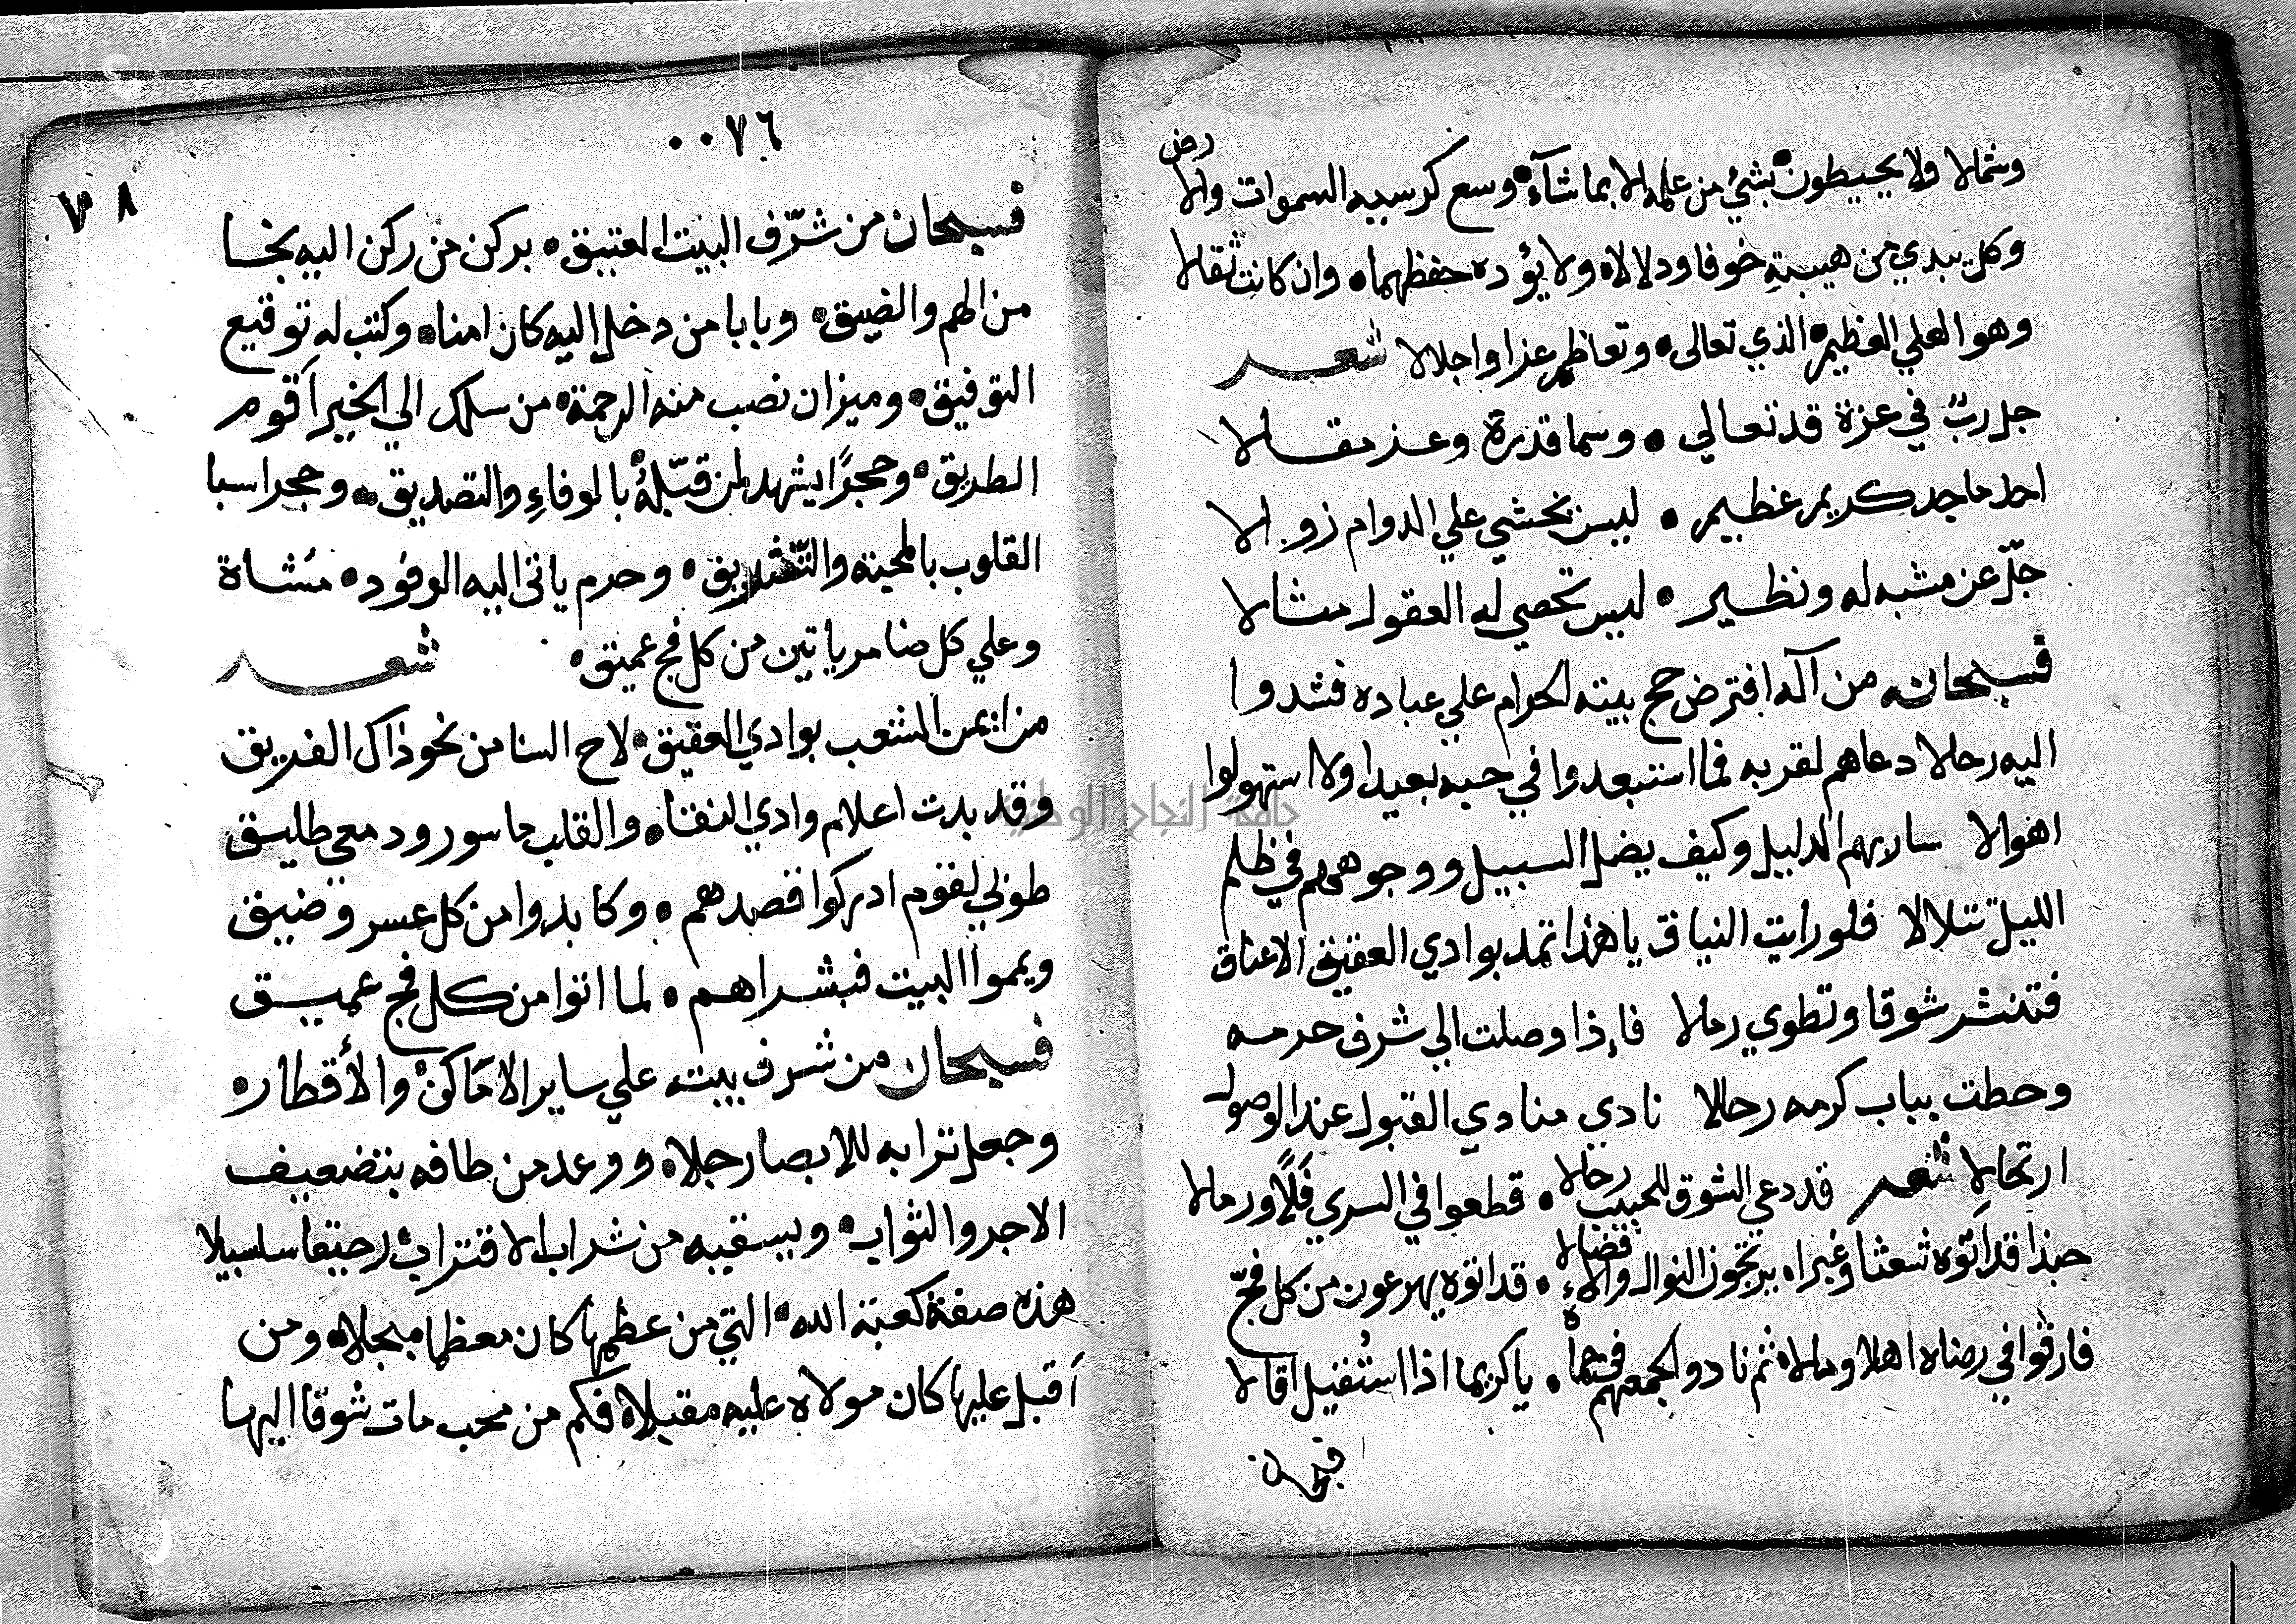 وشمالا ولا يحيطون بشئ من علمه الا بما شآء وسع كرسيه السموات والارض
وكل يبدي من هيبته خوفا ودلالا ولا يؤده حفظهما وان كانت ثقالا
وهو العلي العظيم الذي تعالى وتعاظم عذا واجلالا شعــر
جل رب في عزة قد تعالي وسما قدرة وعز مقالا
احد ماجد كريم عظيم ليس يخشي علي الدوام زوالا
جل عن مشبه له ونظير ليس تحصي له العقول مثالا
فسبحانه من اله افترض حج بيته الحرام علي عباده فشدوا
اليه رحالا دعاهم لقربه فما استبعدوا في حبه بعيدا ولا استهولوا
اهوالا سار بهم الدليل وكيف يضل السبيل ووجوههم في ظلم
الليل تتلالا فلو رايت النياق يا هذا تمد بوادي العقيق الاعناق
فتنشر شوقا وتطوي رمالا فإذا وصلت الي شرف حرمه
وحطت بباب كرمه رحالا نادي منادي القبول عند الوصول
ارتحالا شعر قد دعي الشوق للحبيب رجالا قطعوا في السري فلاً ورمالا
حبذا قد اتوه شعثا وغبرا يرتجون النوال والافضالا قد اتوه يهرعون من كل فج
فارقوا في رضاه اهلا ومالا ثم نادوا بجمعهم في حماه يا كريما اذا استُقيل اقالا
فسبحان
٠٠٧٦
٧٨
فسبحان من شرّف البيت العتيق بركن من ركن اليه نجا
من الهم والضيق وبابا من دخل اليه كان امنا وكتب له توقيع
التوفيق وميزان نصب منه الرحمة من سلك الي الخير اقوم
الطريق وحجرًا يشهد لمن قبّله بالوفاءِ والتصديق وحجرا سبا
القلوب بالمحبة والتشريق وحرم ياتي اليه الوفود مُشاة
وعلي كل ضامر ياتين من كل فج عميق شعــر
من ايمن الشعب بوادي العقيق لاح السنا من نحو ذاك الفريق
وقد بدت اعلام وادي النقا والقلب ماسور ودمعي طليق
طوبي لقوم ادركوا قصدهم وكابدوا من كل عسر وضيق
ويمموا البيت فبشراهم لما اتوا من كل فج عميق
فسبحان من شرف بيته علي ساير الاماكن والأقطار
وجعل ترابه للابصار جلا ووعد من طافه بتضعيف
الاجر والثواب ويسقيه من شراب الاقتراب رحيقا سلسبيلا
هذه صفة كعبة الله التي من عظمها كان معظما مبجلا ومن
اقبل عليها كان مولاه عليه مقبلا فكم من محب مات شوقا اليها
جامعة النجاح الوطنية